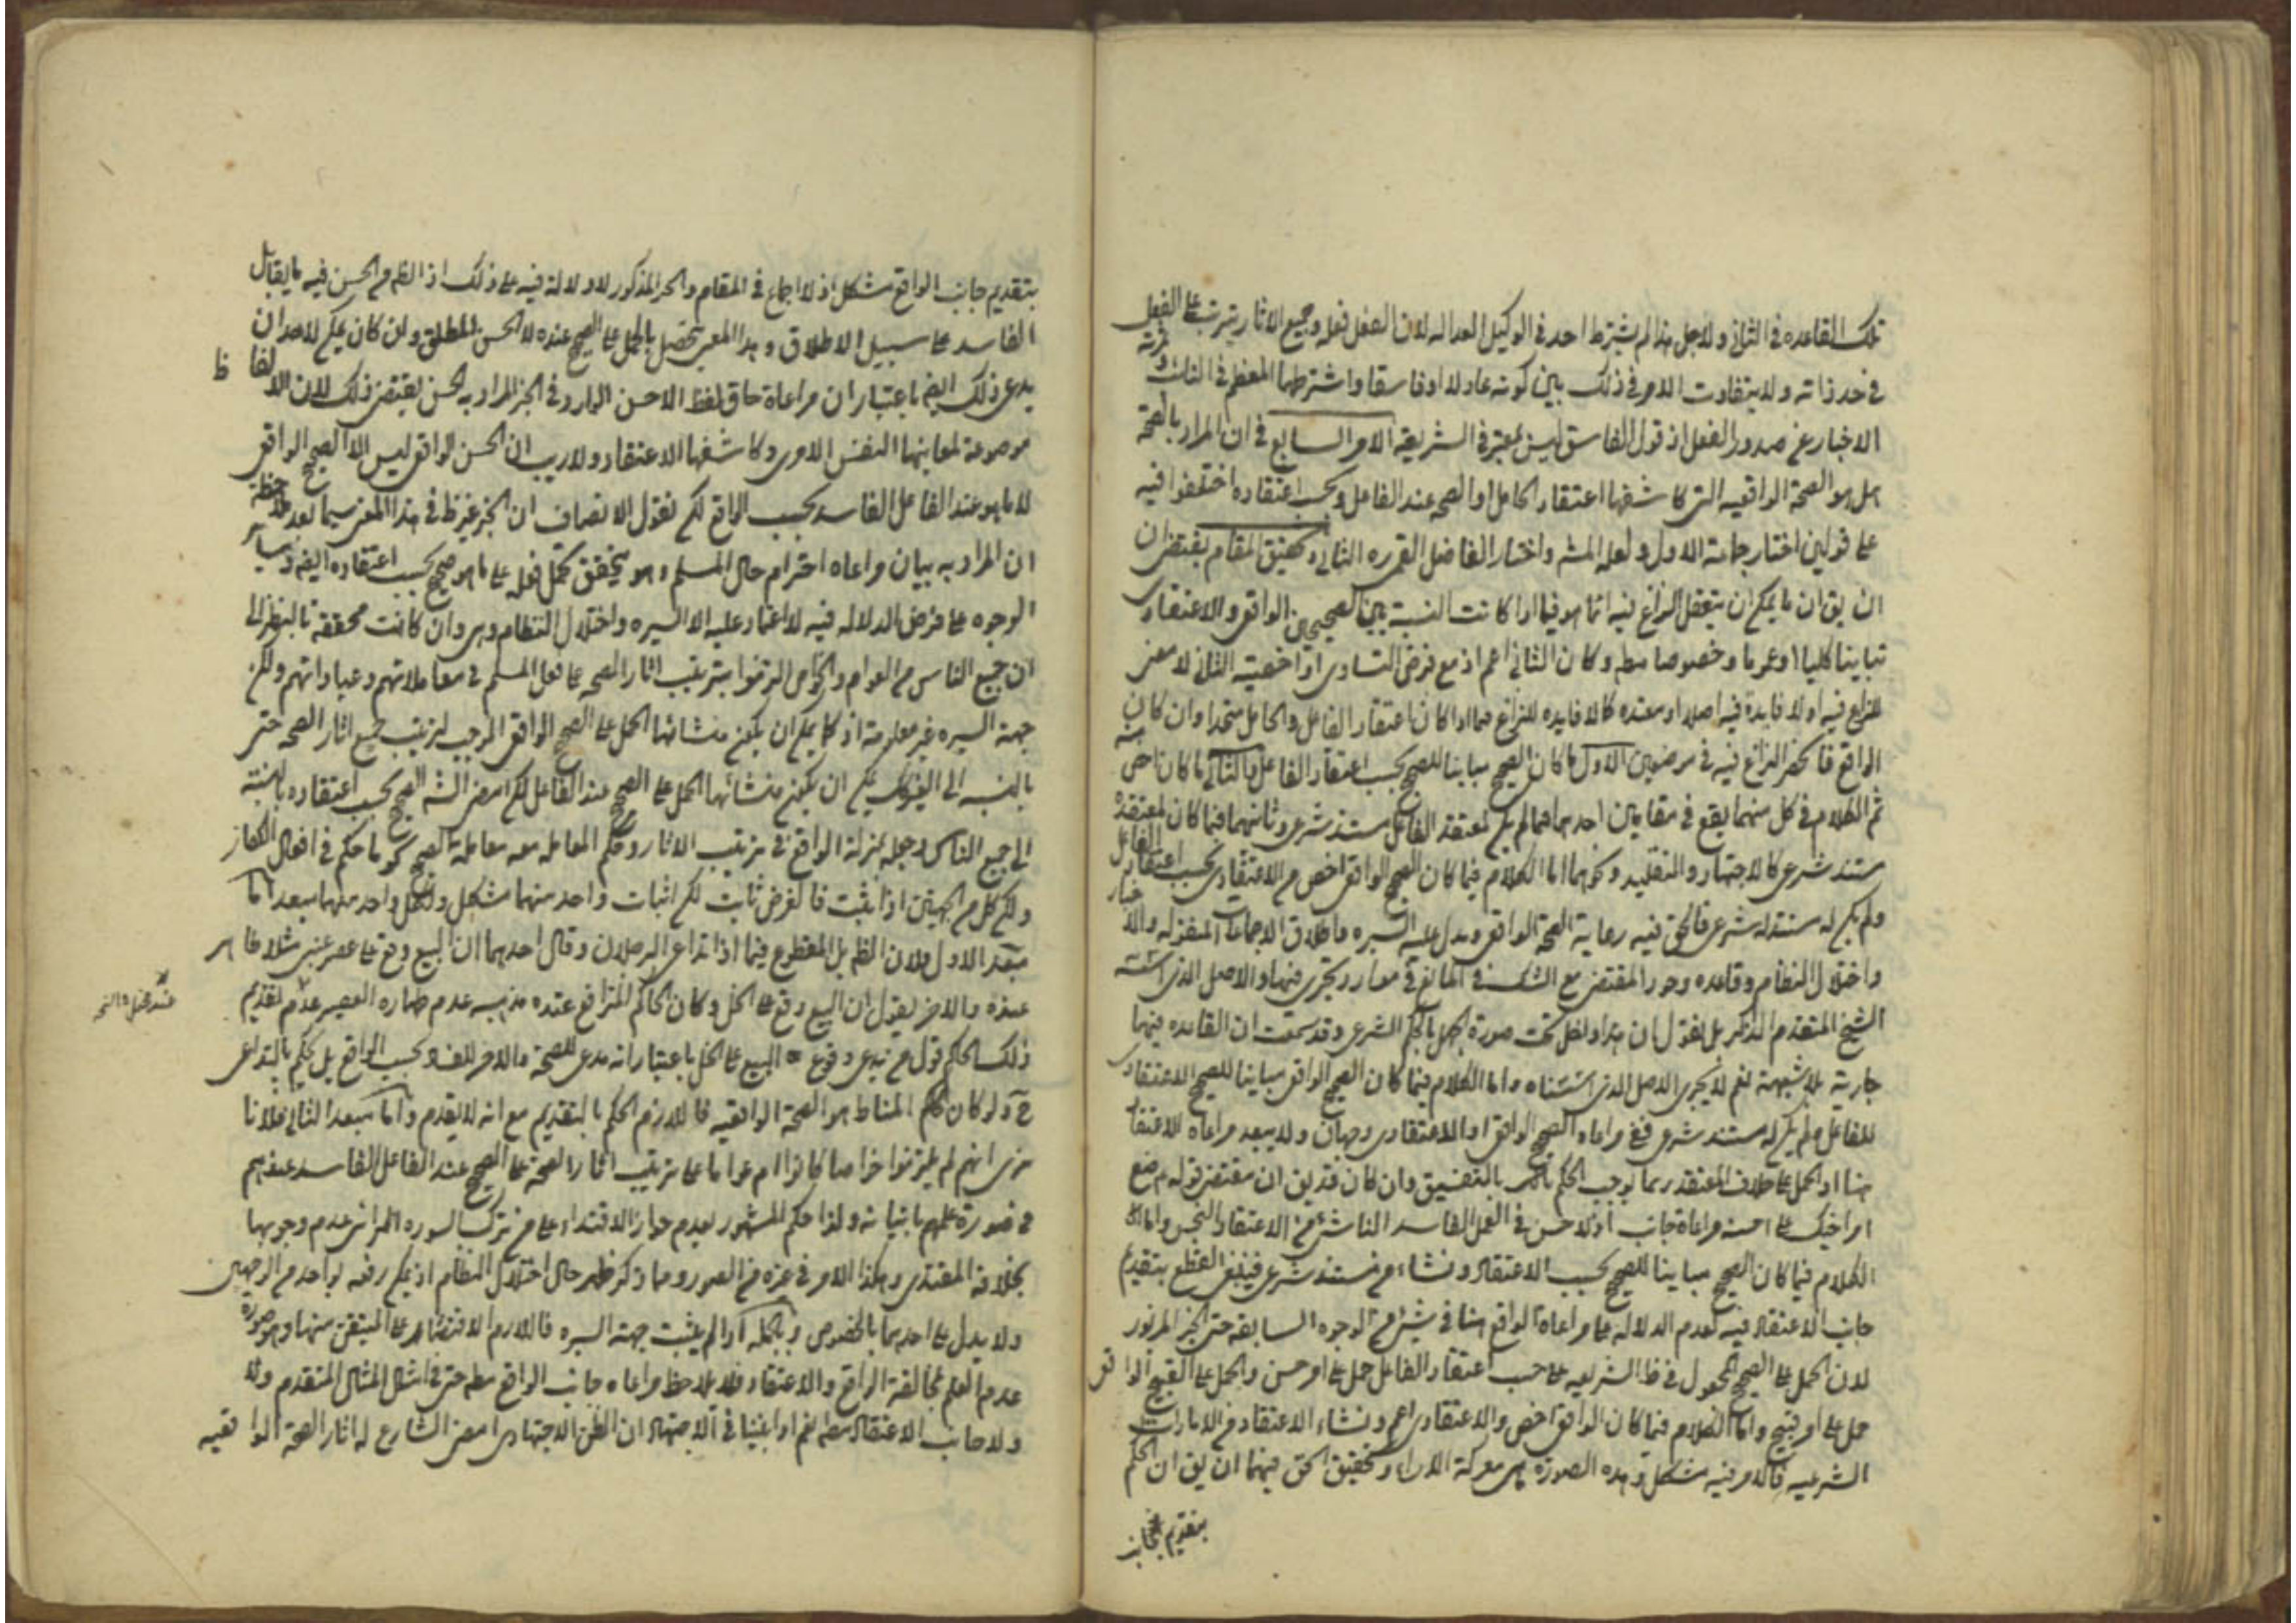 تلك القاعده فى الثانى ولاجل هذا لم يشترط احد فى الوكيل العداله لان الفعل فعله وجميع الاثار يترتب على الفعل
فى حد ذاته ولا يتفاوت الامر فى ذلك بين كونه عادلا او فاسقا واشترطها المعظم فى النائب
الاخبار عن صدور الفعل اذ قول الفاسق ليس بمعتبر فى الشريعه الامر السابع فى ان المراد بالصحة
هل هو الصحة الواقعيه التى كاشفها اعتقاد الحامل او الصحه عند الفاعل وبحسب اعتقاده اختلفوا فيه
على قولين اختار جماعة الاول ولعله المش واختار الفاضل القمى ره الثانى وتحقيق المقام يقتضى ان
ان يق ان ما يمكن ان يتعقل النزاع فيه انما هو فيما اذا كانت النسبة بين الصحيحين الواقعى والاعتقادى
تباينا كليا او عموما وخصوصا مطه وكان الثانى اعم اذ مع فرض التساوى او اخصيته الثانى لا معنى
للنزاع فيه او لا فايدة فيه اصلا او معتده كما لا فايده للنزاع فيما اذا كان اعتقاد الفاعل والحامل متحدا وان كان
الواقع فانحصر النزاع فيه فى موضعين الاول ما كان الصحيح مباينا للصحيح بحسب اعتقاد الفاعل والثانى ما كان اخص منه
ثم الكلام فى كل منهما يقع فى مقامين احدهما فيما لم يكن لمعتقد الفاعل مستند شرعى وثانيهما فيما كان لمعتقده
مستند شرعى كالاجتهاد والتقليد ونحوهما اما الكلام فيما كان الصحيح الواقعى اخص من الاعتقادى بحسب اعتقاد الفاعل
ولم يكن له مستند شرعى فالحق فيه رعاية الصحة الواقعى ويدل عليه السيره واطلاق الاجماعات المنقوله والاخبار
واختلال النظام وقاعده وجود المقتضى مع الشك فى المانع فى موارد تجرى فيها والاصل الذى اسسه
الشيخ المتقدم الذكر بل نقول ان هذا داخل تحت صورة الجهل بالحكم الشرعى وقد سمعت ان القاعده فيها
جارية بلا شبهة نعم لا يجرى الاصل الذى اسسناه واما الكلام فيما كان الصحيح الواقعى مباينا للصحيح الاعتقادى
للفاعل ولم يكن له مستند شرعى ففى مراعاه الصحيح الواقعى او الاعتقادى وجهان ولا يبعد مراعاه الاعتقاد
هنا اذ الحمل على خلاف المعتقد ربما يوجب الحكم بالتفسيق وان كان قد يق ان مقتضى قوله ضع
امر اخيك على احسنه مراعاة جانب اذ لا حسن فى الفعل الفاسد الناشئ من الاعتقاد النجس واما
الكلام فيما كان الصحيح مباينا للصحيح بحسب الاعتقاد ونشاء من مستند شرعى فينبغى القطع بتقديم
جانب الاعتقاد فيه لعدم الدلاله على مراعاة الواقع هنا فى شئ من الوجوه السابقه حتى الخبر المزبور
لان الحمل على الصحيح المجعول فى ظ الشريعه على حسب اعتقاد الفاعل حمل على امر حسن والحمل على القبيح الواقعى
حمل على امر قبيح واما الكلام فيما كان الواقعى اخص والاعتقادى اعم ونشاء الاعتقاد من الامارات
الشرعيه فالامر فيه مشكل وهذه الصورة هى معركة الاراء وتحقيق الحق فيها ان يق ان الحكم
بتقديم جانب
بتقديم جانب الواقع مشكل اذ لا اجماع فى المقام والخبر المذكور لا دلالة فيه على ذلك اذ الظه من الحسن فيه ما يقابل
الفاسد على سبيل الاطلاق وهذا المعنى يحصل بالحمل على الصحيح عنده لا الحسن المطلق وان كان يمكن لاحد ان
يدعى ذلك ايضه باعتبار ان مراعاة حاق لفظ الاحسن الوارد فى الخبر المراد به الحسن يقتضى ذلك لان الالفاظ
موضوعة لمعانيها النفس الامرى وكاشفها الاعتقاد ولا ريب ان الحسن الواقعى ليس الا الصحيح الواقعى
لا ما هو عند الفاعل الفاسد بحسب الواقع لكن نقول الانصاف ان الخبر غير ظ فى هذا المعنى سيما بعد ملاحظة
ان المراد به بيان مراعاه احترام حال المسلم وهو يتحقق بحمل فعله على ما هو صحيح بحسب اعتقاده ايضه وسائر
الوجوه على فرض الدلاله فيه لا اعتماد عليه الا السيره واختلال النظام وهى وان كانت محققة بالنظر الى
ان جميع الناس من العوام والخواص التزموا بترتيب اثار الصحه على فعل المسلم فى معاملاتهم وعباداتهم ولكن
جهة السيره غير معلومة اذ كما يمكن ان يكون منشائها الحمل على الصحيح الواقعى الموجب لترتيب جميع اثار الصحه حتى
بالنسبه الى الغير كك يمكن ان يكون منشائها الحمل على الصحيح عند الفاعل لكن امضى الشه الصحيح بحسب اعتقاده بالنسبة
الى جميع الناس وجعله بمنزلة الواقع فى ترتيب الاثار وحكم المعامله معه معاملة الصحيح كما حكم فى افعال الكفار
ولكن كل من الجهتين اذا يثبت فالفرض ثابت لكن اثبات واحد منهما مشكل ولكل واحد منهما مبعد اما
مبعد الاول فلان الظه بل المقطوع فيما اذا تداعى الرجلان وقال احدهما ان البيع وقع على عصير عنبى مثلا
عنده والاخر يقول ان البيع وقع على الخل وكان الحاكم المترافع عنده مذهبه عدم طهاره العصير عدم تقديم
ذلك الحاكم قول من يدعى وقوع البيع على الخل باعتبار انه مدعى للصحة والاخر للفساد بحسب الواقع بل يحكم بالتداعى
ح ولو كان المناط هو الصحة الواقعيه فاللازم الحكم بالتقديم مع انه لا يقدم واما مبعد الثانى فلانا
نرى انهم لم يلتزموا خواصا كانوا ام عواما على ترتيب اثار الصحة على الصحيح عند الفاعل الفاسد عندهم
فى صورة علمهم باتيانه ولذا حكم المشهور بعدم جواز الاقتداء على من يترك السوره لمن يرى عدم وجوبها
بخلافه المقتدى وهكذا الامر فى غيره من الصور ومما ذكر ظهر حال اختلال النظام اذ يمكن رفعه بواحد من الوجهين
ولا يدل على احدهما بالخصوص وبالجمله اذا لم يثبت جهة السيره فاللازم الاقتصار على المتيقن منها وهو صورة
عدم العلم بمخالفة الواقع والاعتقاد فلا يلاحظ مراعاه جانب الواقع مطه حتى فى امثال المثال المتقدم ولا
ولا جانب الاعتقاد مطه نعم اذا بنينا فى الاجتهاد ان الظن الاجتهادى امضى الشارع له اثار الصحة الواقعيه